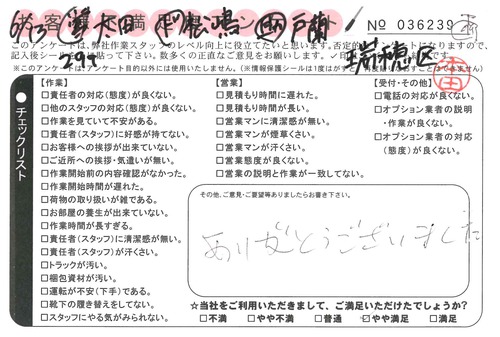 お客様不満 アンケート
No 036239
6/13 太田 根鴻 戸蘭 瑞穂区
29t
このアンケートは、弊社作業スタッフのレベル向上に役立てたいと思います。
※このアンケートは、アンケート目的以外には使用いたしません。
チェックリスト
【作業】
□責任者の対応(態度)が良くない。
□他のスタッフの対応(態度)が良くない。
□作業を見ていて不安がある。
□責任者(スタッフ)に好感が持てない。
□お客様への挨拶が出来ていない。
□ご近所への挨拶・気遣いが無い。
□作業開始前の内容確認がなかった。
□作業開始時間が遅れた。
□荷物の取り扱いが雑である。
□お部屋の養生が出来ていない。
□作業時間が長すぎる。
□責任者(スタッフ)に清潔感が無い。
□責任者(スタッフ)が汗くさい。
□トラックが汚い。
□梱包資材が汚い。
□運転が不安(下手)である。
□靴下の履き替えをしてない。
□スタッフにやる気がみられない。
【営業】
□見積もり時間に遅れた。
□見積もり時間が長い。
□営業マンに清潔感が無い。
□営業マンが煙草くさい。
□営業マンが汗くさい。
□営業態度が良くない。
□営業の説明と作業が一致してない。
【受付・その他】
□電話の対応が良くない。
□オプション業者の説明
・作業が良くない。
□オプション業者の対応
(態度)が良くない。
その他、ご意見・ご要望等ありましたらお書き下さい。
ありがとうございました
☆当社をご利用いただきまして、ご満足いただけたでしょうか?
□不満 □やや不満 □普通 ☑やや満足 □満足